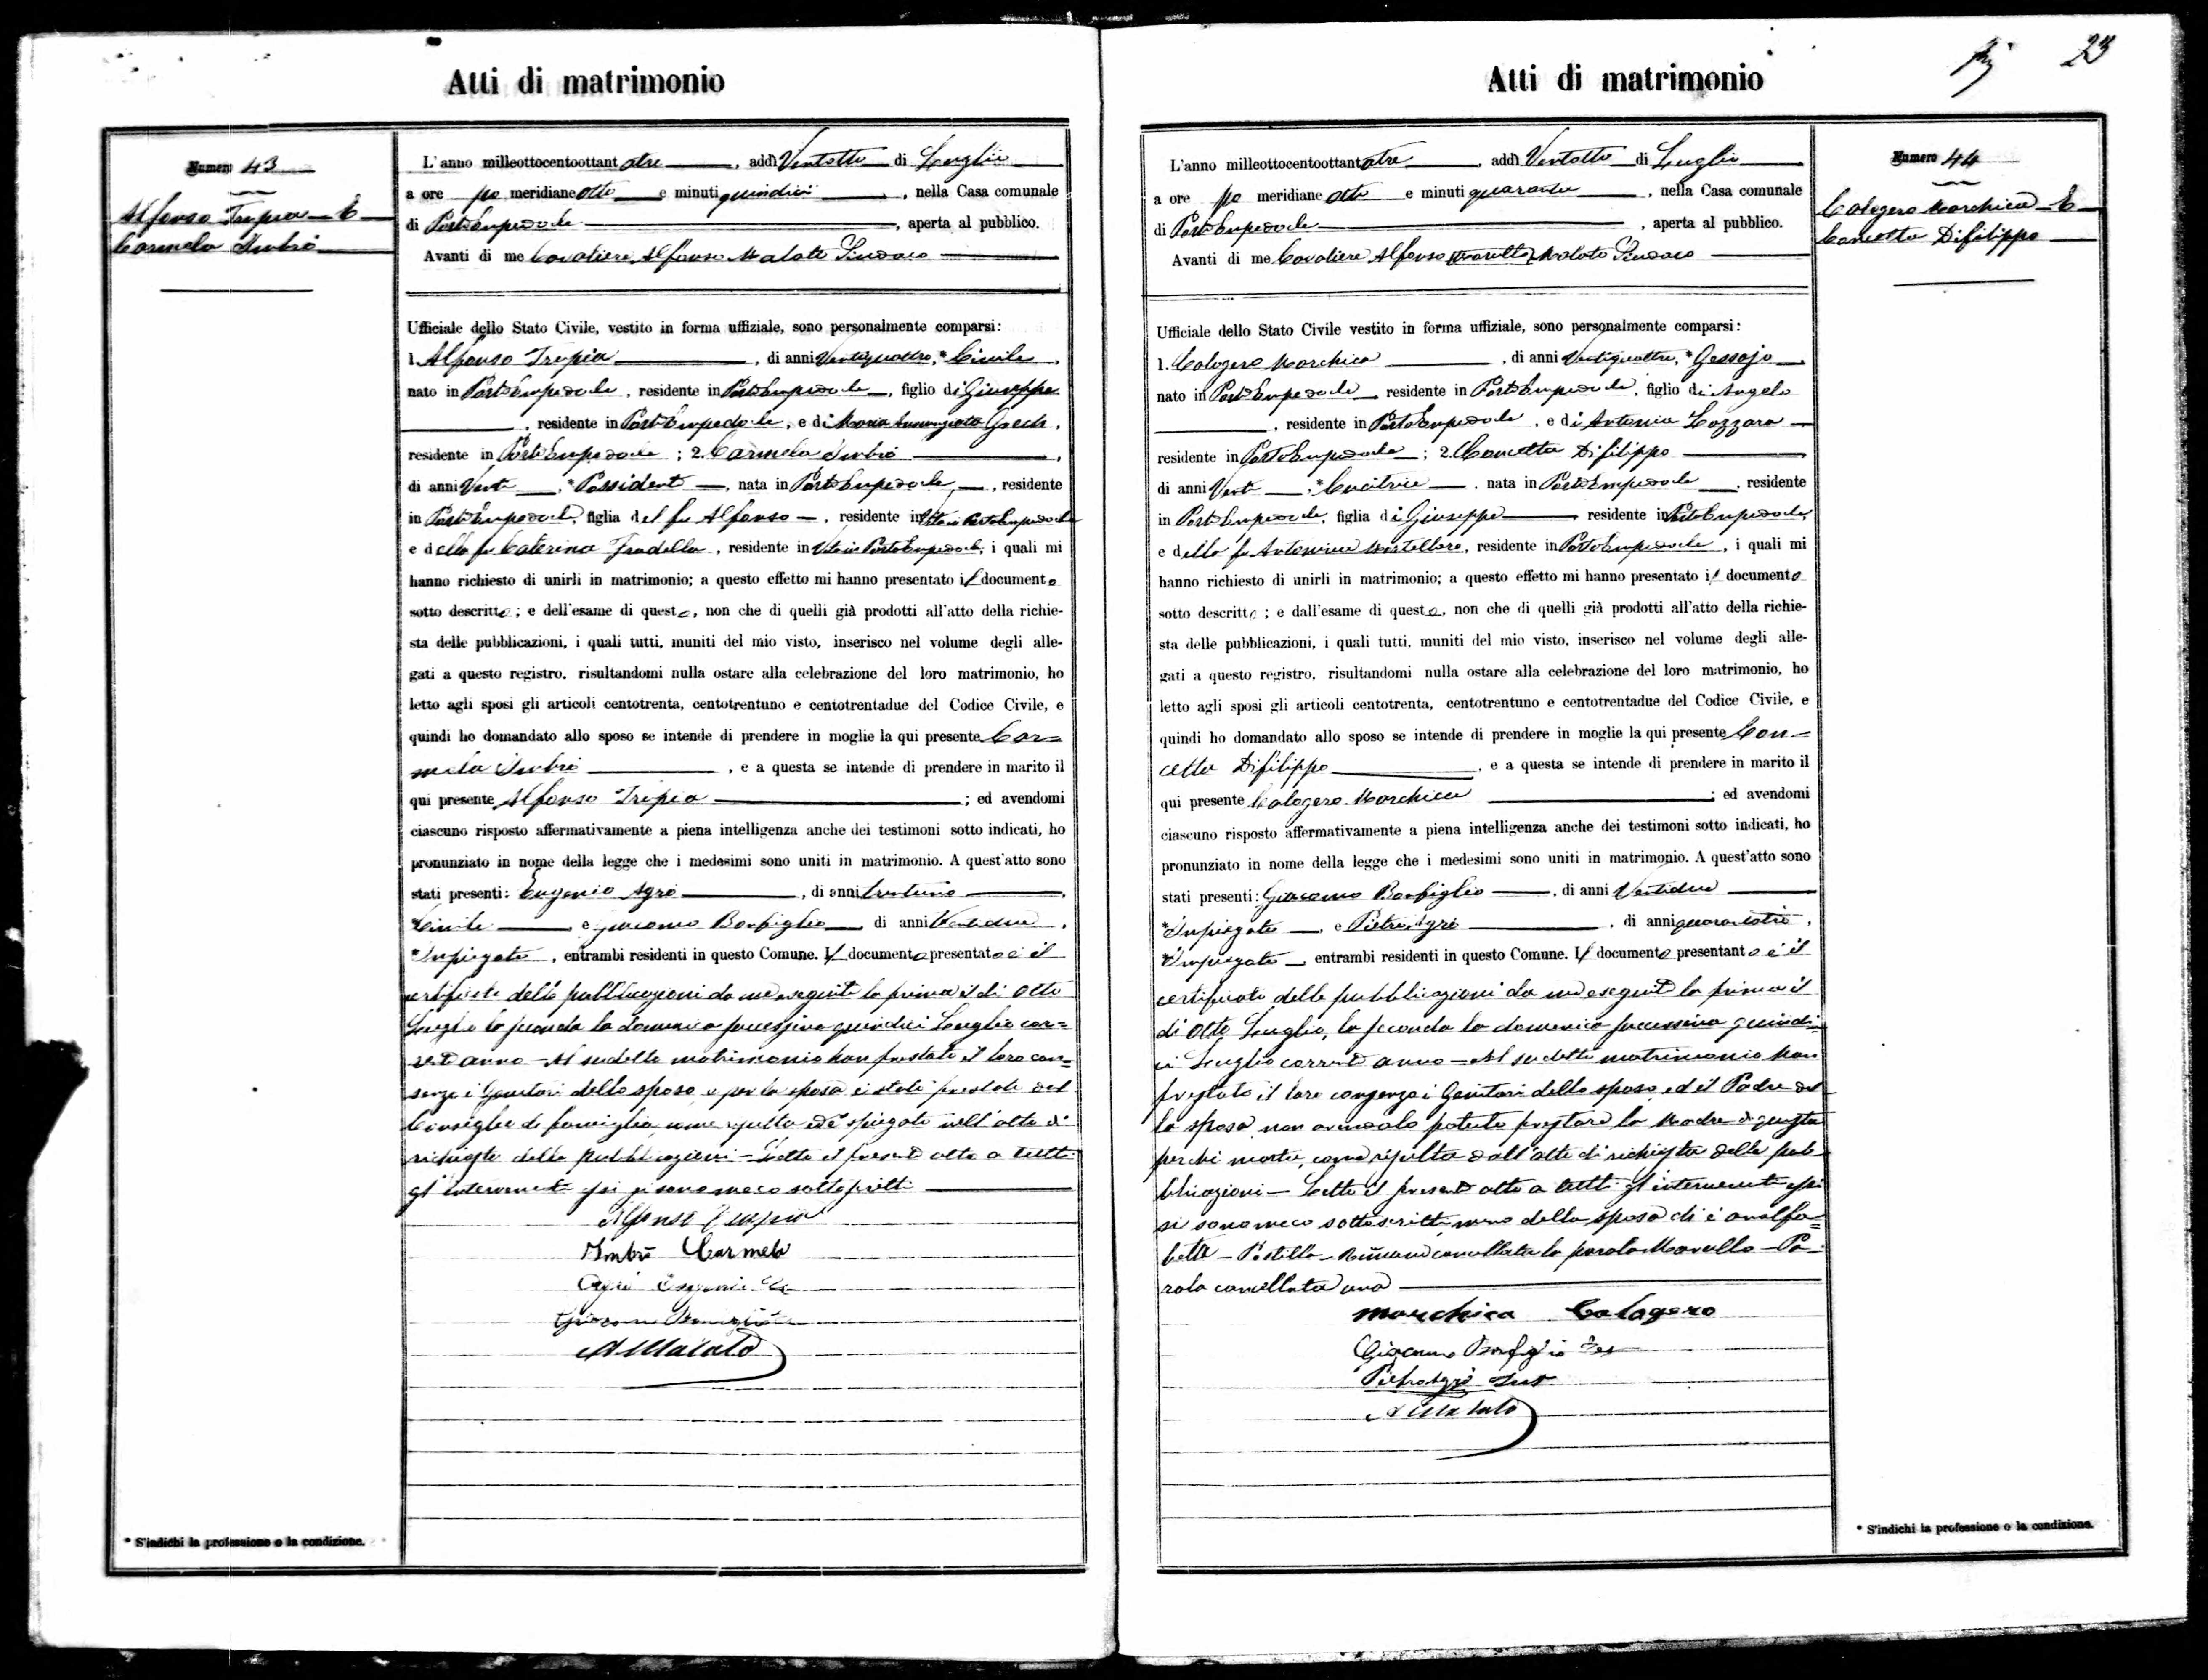 Atti di matrimonio
Numero 43
Alfonso Trepia e
Carmela Imbrò
L'anno milleottocentoottant otre , addì Ventotto di Luglio
a ore po meridiane otto e minuti quindici , nella Casa comunale
di Porto Empedocle , aperta al pubblico.
Avanti di me Cavaliere Alfonso Malato Sindaco
Ufficiale dello Stato Civile, vestito in forma uffiziale, sono personalmente comparsi:
1. Alfonso Trepia , di anni Ventiquattro, * Civile ,
nato in Porto Empedocle , residente in Porto Empedocle , figlio di Giuseppe
, residente in Porto Empedocle , e di Maria Annunziata Grech ,
residente in Porto Empedocle ; 2. Carmela Imbrò ,
di anni Venti , * Possidente , nata in Porto Empedocle , residente
in Porto Empedocle, figlia del fu Alfonso , residente in Vita in Porto Empedocle
e della fu Caterina Fradella , residente in Vita in Porto Empedocle, i quali mi
hanno richiesto di unirli in matrimonio; a questo effetto mi hanno presentato il documento
sotto descritto ; e dell'esame di questo, non che di quelli già prodotti all'atto della richie-
sta delle pubblicazioni, i quali tutti, muniti del mio visto, inserisco nel volume degli alle-
gati a questo registro, risultandomi nulla ostare alla celebrazione del loro matrimonio, ho
letto agli sposi gli articoli centotrenta, centotrentuno e centotrentadue del Codice Civile, e
quindi ho domandato allo sposo se intende di prendere in moglie la qui presente Car=
mela Imbrò , e a questa se intende di prendere in marito il
qui presente Alfonso Trepia ; ed avendomi
ciascuno risposto affermativamente a piena intelligenza anche dei testimoni sotto indicati, ho
pronunziato in nome della legge che i medesimi sono uniti in matrimonio. A quest'atto sono
stati presenti: Eugenio Agrò , di anni trentuno ,
* Civile e Giacomo Bonfiglio di anni Ventidue ,
* Impiegato , entrambi residenti in questo Comune. Il documento presentato è il
certificato delle pubblicazioni da me eseguite la prima il di Otto
Luglio la seconda la domenica successiva quindici Luglio cor=
rente anno - Al sudetto matrimonio han prestato il loro con=
senso i Genitori dello sposo, e per la sposa è stato prestato dal
Consiglio di famiglia, come risulta ed è spiegato nell'atto di
richiesta delle pubblicazioni - Letto il presente atto a tutti
gl'intervenuti essi si sono meco sottoscritti
Alfonso Trepia
Imbrò Carmela
Agrò Eugenio
Giacomo Bonfiglio
A Malato
* S'indichi la professione o la condizione.
23
Atti di matrimonio
Numero 44
Calogero Marchica e
Concetta Difilippo
L'anno milleottocentoottant otre , addì Ventotto di Luglio
a ore po meridiane otto e minuti quaranta , nella Casa comunale
di Porto Empedocle , aperta al pubblico.
Avanti di me Cavaliere Alfonso Malato Sindaco
Ufficiale dello Stato Civile vestito in forma uffiziale, sono personalmente comparsi:
1. Calogero Marchica , di anni Ventiquattro, * Gessajo
nato in Porto Empedocle residente in Porto Empedocle, figlio di Angelo
, residente in Porto Empedocle , e di Antonia Lazzara
residente in Porto Empedocle ; 2. Concetta Difilippo
di anni Venti , * Cucitrice , nata in Porto Empedocle , residente
in Porto Empedocle, figlia di Giuseppe residente in Porto Empedocle,
e della fu Antonina Mistellaro, residente in Porto Empedocle , i quali mi
hanno richiesto di unirli in matrimonio; a questo effetto mi hanno presentato il documento
sotto descritto ; e dall'esame di questo, non che di quelli già prodotti all'atto della richie-
sta delle pubblicazioni, i quali tutti, muniti del mio visto, inserisco nel volume degli alle-
gati a questo registro, risultandomi nulla ostare alla celebrazione del loro matrimonio, ho
letto agli sposi gli articoli centotrenta, centotrentuno e centotrentadue del Codice Civile, e
quindi ho domandato allo sposo se intende di prendere in moglie la qui presente Con=
cetta Difilippo , e a questa se intende di prendere in marito il
qui presente Calogero Marchica ; ed avendomi
ciascuno risposto affermativamente a piena intelligenza anche dei testimoni sotto indicati, ho
pronunziato in nome della legge che i medesimi sono uniti in matrimonio. A quest'atto sono
stati presenti: Giacomo Bonfiglio , di anni Ventidue
* Impiegato , e Pietro Agrò , di anni quarantatre ,
* Impiegato entrambi residenti in questo Comune. Il documento presentanto è il
certificato delle pubblicazioni da me eseguite la prima il
di otto Luglio, la seconda la domenica successiva quindi=
ci Luglio corrente anno = Al sudetto matrimonio han
prestato il loro consenso i Genitori dello sposo, ed il Padre del
la sposa non avendolo potuto prestare la Madre di questa
perchè morta, come risulta dall'atto di richiesta delle pub
blicazioni - Letto il presente atto a tutti gl'intervenuti essi
si sono meco sottoscritti meno della sposa chi è analfa=
beta - Postilla - Rimane cancellata la parola Marullo - Pa=
rola cancellata una
Marchica Calogero
Giacomo Bonfiglio Tes
Pietro Agrò Test
A Malato
* S'indichi la professione o la condizione.